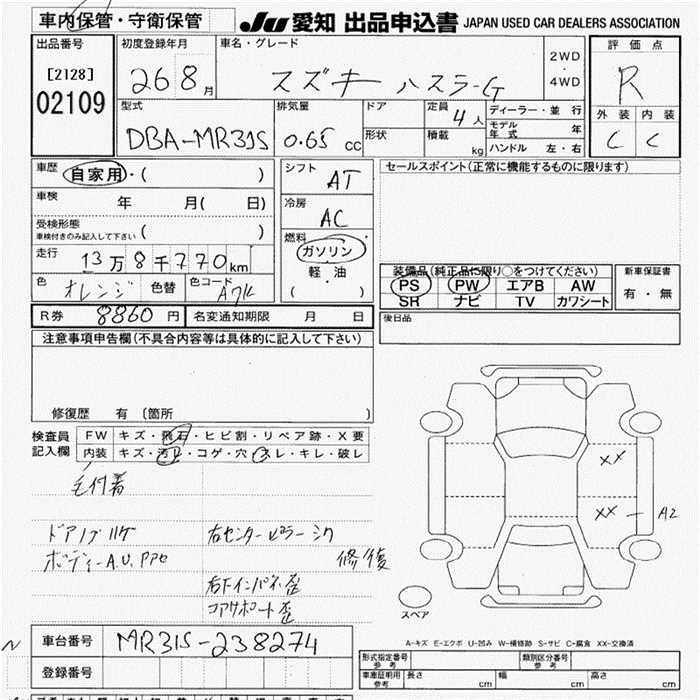 車内保管・守衛保管 JU 愛知 出品申込書 JAPAN USED CAR DEALERS ASSOCIATION
出品番号 [2128] 02109
初度登録年月 26 8月
車名・グレード スズキ ハスラーG
2WD ・ 4WD
評価点 R
外装 内装
C C
型式 DBA-MR31S
排気量 0.65 cc
ドア
形状
定員 4人
積載 kg
ディーラー・並行
モデル年式 年
ハンドル 左・右
車歴 自家用・( )
車検 年 月( 日)
受検形態 ( )
車検付きのみ記入して下さい
走行 13万8千770km
色 オレンジ 色替 色コード
シフト AT
冷房 AC
燃料 ガソリン
軽・油
( )
セールスポイント(正常に機能するものに限ります)
装備品(純正品に限り○をつけてください)
PS PW エアB AW
SR ナビ TV カワシート
新車保証書
有・無
R券 8860円 名変通知期限 月 日
後日品
注意事項申告欄(不具合内容等は具体的に記入して下さい)
修復歴 有 〔箇所 〕
検査員記入欄
FW キズ・飛石・ヒビ割・リペア跡・X要
内装 キズ・汚レ・コゲ・穴・スレ・キレ・破レ
毛付着
ドアノブハゲ 右センターピラーシワ
ボディーA.U. 修復
右下インパネ歪
コアサポート歪
XX
XX - A2
スペア
A-キズ E-エクボ U-凹み W-補修跡 S-サビ C-腐食 XX-交換済
車台番号 MR31S-238274
登録番号
形式指定番号 参考
類別区分番号 参考
車庫証明用 参考 長さ cm 幅 cm 高さ cm